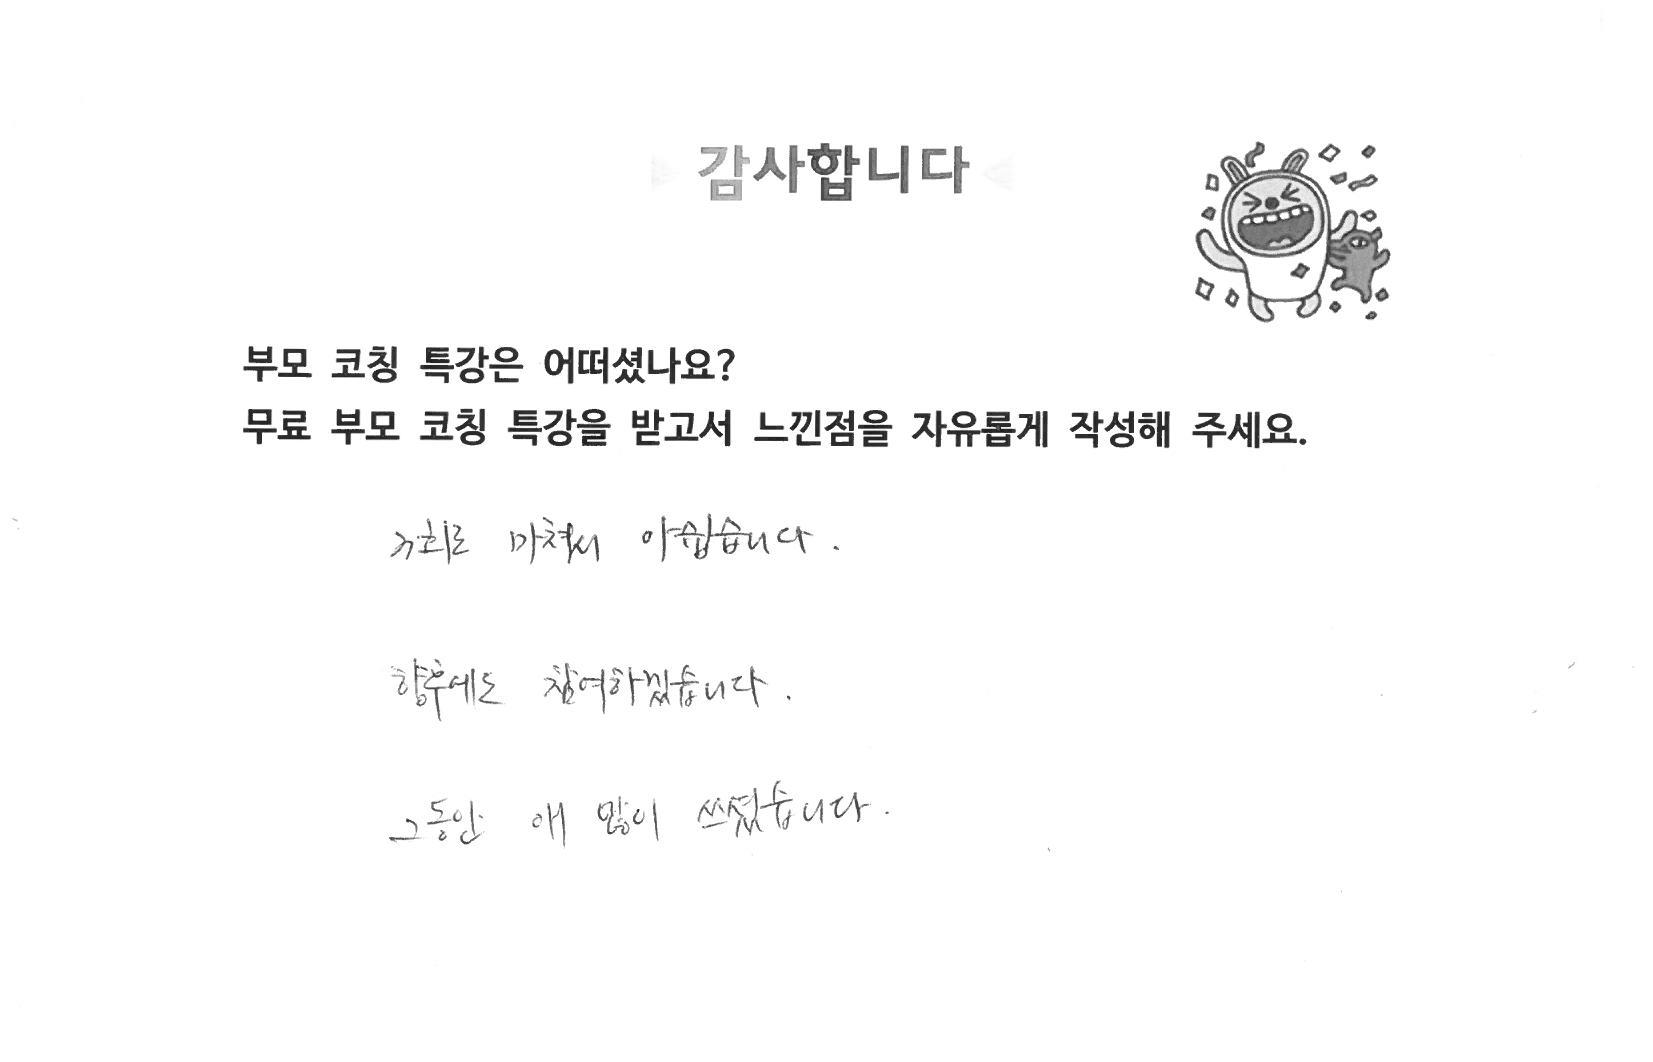 감사합니다
부모 코칭 특강은 어떠셨나요?
무료 부모 코칭 특강을 받고서 느낀점을 자유롭게 작성해 주세요.
마쳐서 아쉽습니다.
향후에도 참여하겠습니다.
그동안 애 많이 쓰셨습니다.